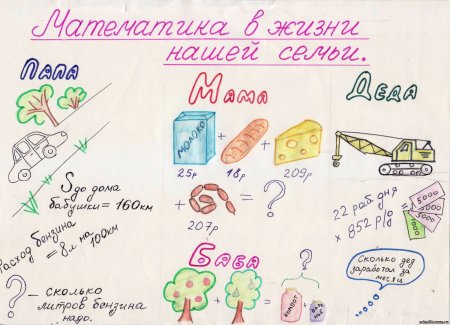 Математика в жизни
нашей семьи.
Папа
S до дома
бабушки = 160км
Расход бензина
= 8л на 100км
? – сколько
литров бензина
надо.
Мама
МОЛОКО
+ + 
25р 18р 209р
+ = ?
207р
Баба
+ = ?
КОМПОТ
Деда
22 раб дня
× 852 р/д
5000
5000
5000
1000
Сколько дед
заработал за
месяц